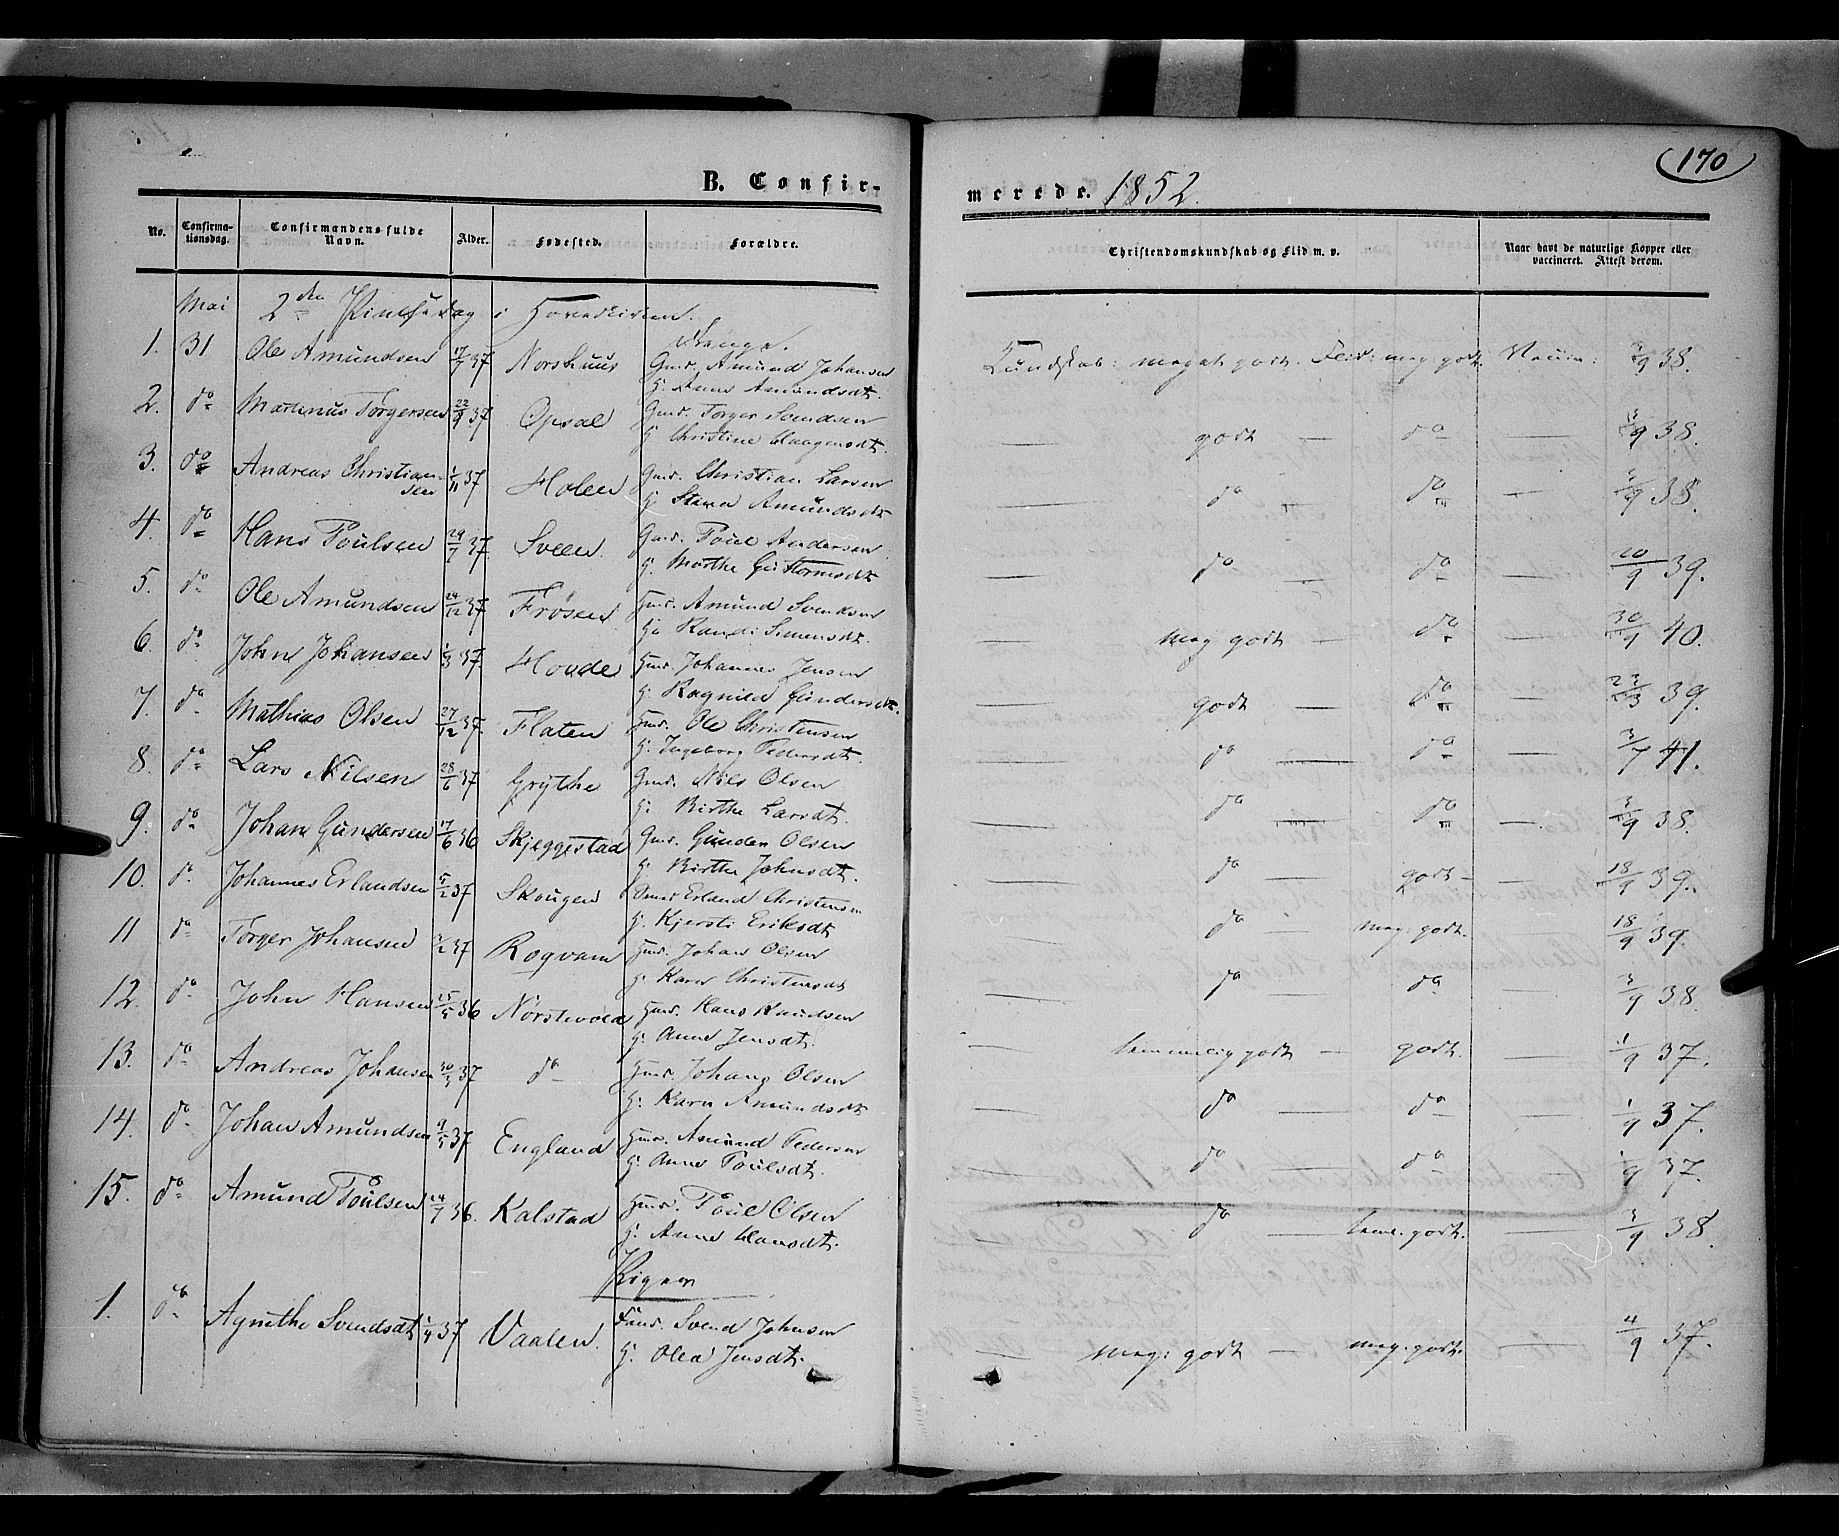 170
B. Confir-
merede. 1852.
No.
Confirma-
tionsdag.
Confirmandens fulde
Navn.
Alder.
Fødested.
Forældre.
Christendomskundskab og Flid m. v.
Naar havt de naturlige Kopper eller
vaccineret. Attest derom.
Mai 2den Pintsedag i Hovedkirken.
Drenge.
1. 31 Ole Amundsen 17/7 37 Norshuus Gmd. Amund Johansen
G. Anne Amundsdt.
Kundskab: meget godt. Flid: meg: godt. Vaccin: 3/9 38.
2. do Martinus Torgersen 22/9 37 Opsal Gmd. Torger Svendsen
G. Christine Haagensdt.
— godt — do — 3/9 38.
3. do Andreas Christian-
sen 1/11 37 Holen Gmd. Christian Larsen
G. Amundsdt
— do do — 3/9 38.
4. do Hans Poulsen 29/7 37. Sveen. Gmd. Poul Andersen
G. Marthe Guttormsdt
— do — do — 20/9 39.
5. do Ole Amundsen 24/12 37 Frøsen Hmd. Amund Svendsen
G. Randi Simensdt.
— meg godt — do — 30/9 40.
6. do John Johansen 1/3 37 Hovde Hmd. Johannes Jensen
G. Ragnild Gundersdt.
— godt — do — 23/3 39.
7. do Mathias Olsen 27/12 37. Flaten Hmd. Ole Christensen
G. Ingeborg Pedersdt.
— do — do — 3/7 41.
8. do Lars Nilsen 28/6 37 Grythe Gmd. Nils Olsen
G. Birthe Larsdt.
— do do — 3/9 38.
9. do Johan Gundersen 17/6 36 Skjeggestad Gmd. Gunder Olsen
G. Birthe Johnsdt.
— do godt — — 18/9 39.
10. do Johannes Erlandsen 5/2 37 Skougen Erland Christensen
G. Kjersti Eriksdt
— do — meg: godt. — 18/9 39.
11 do Torger Johansen 2/2 37 Rogvam Hmd. Johan Olsen
G. Karen Christensdt
— do — do — 3/9 38
12. do John Hansen 25/5 36 Norstevold Hmd. Hans Knudsen
G. Anne Jensdt.
— temmelig godt — godt. — 1/9 37.
13. do Andreas Johansen 30/3 37 do Hmd. Johan Olsen
G. Karen Amundsdt
— do — do — 1/9 37.
14. do Johan Amundsen 9/5 37 England Hmd. Amund Pedersen
G. Anne Poulsdt.
— do — do — 1/9 37.
15. do Amund Poulsen 24/7 36. Kalstad Hmd. Poul Olsen
G. Anne Hansdt.
— do — teml. godt. — 3/9 38.
Piger
1. do Agnethe Svendsdt 1/4 37 Vaalen. Svend Johnsen
G. Olea Jensdt.
— meg: godt — meg. godt. — 4/9 37.